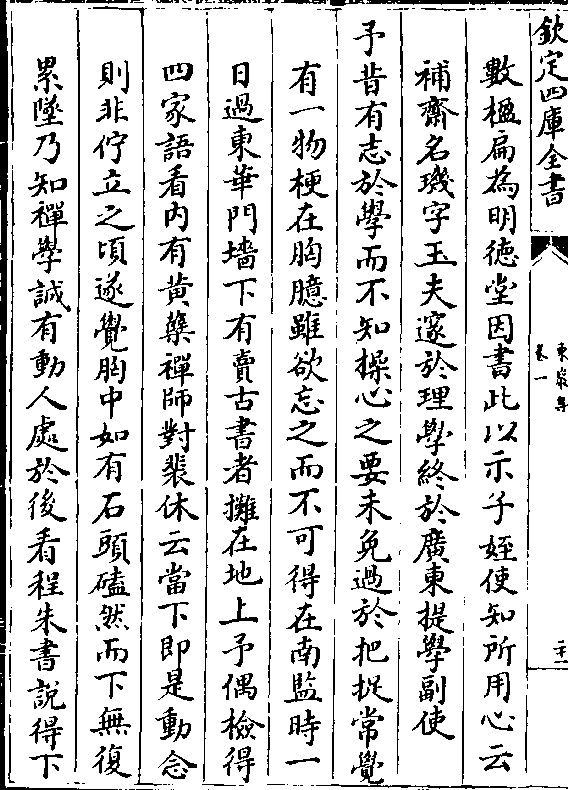 欽定四庫全書
東巖集
卷一
數楹扁為明德堂因書此以示子姪使知所用心云
補齋名璣字玉夫邃於理學終於廣東提學副使
予昔有志於學而不知操心之要未免過於把捉常覺
有一物梗在胸臆雖欲忘之而不可得在南監時一
日過東華門墻下有賣古書者攤在地上予偶檢得
四家語看内有黄蘗禪師對裴休云當下即是動念
則非佇立之頃遂覺胸中如有石頭磕然而下無復
累墜乃知禪學誠有動人處於後看程朱書説得下